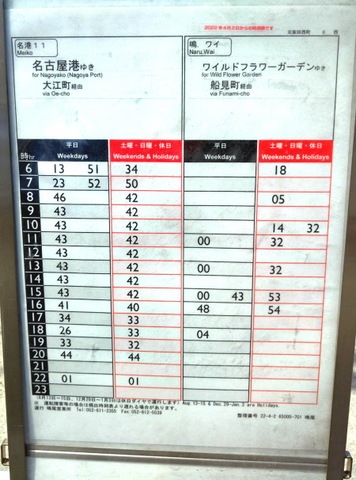 2022年4月2日からの時刻表です
名港11
Meiko
名古屋港ゆき
for Nagoyako (Nagoya Port)
大江町経由
via Oe-cho
鳴. ワイ
Naru.Wai
ワイルドフラワーガーデンゆき
for Wild Flower Garden
船見町経由
via Funami-cho
時hr 平日 Weekdays 土曜・日曜・休日 Weekends & Holidays 平日 Weekdays 土曜・日曜・休日 Weekends & Holidays
6 13 51 34 18
7 23 52 50
8 46 42 05
9 43 42
10 43 42 14 32
11 43 42 00 32
12 43 42
13 43 42 00 32
14 43 42
15 43 42 00 43 53
16 41 40 48 54
17 34 33
18 26 33 04
19 33 32
20 44 44
21
22 01 01
23
(8月13日~15日、12月29日~1月3日は休日ダイヤで運行します) Aug.13-15 & Dec 29-Jan 3 are Holidays.
※ 運転障害等の場合は掲出時刻表より遅れる場合があります。
運行 鳴尾営業所 Tel:052-611-2355 Fax 052-612-5039
整理番号 22-4-2 65000-701 鳴尾